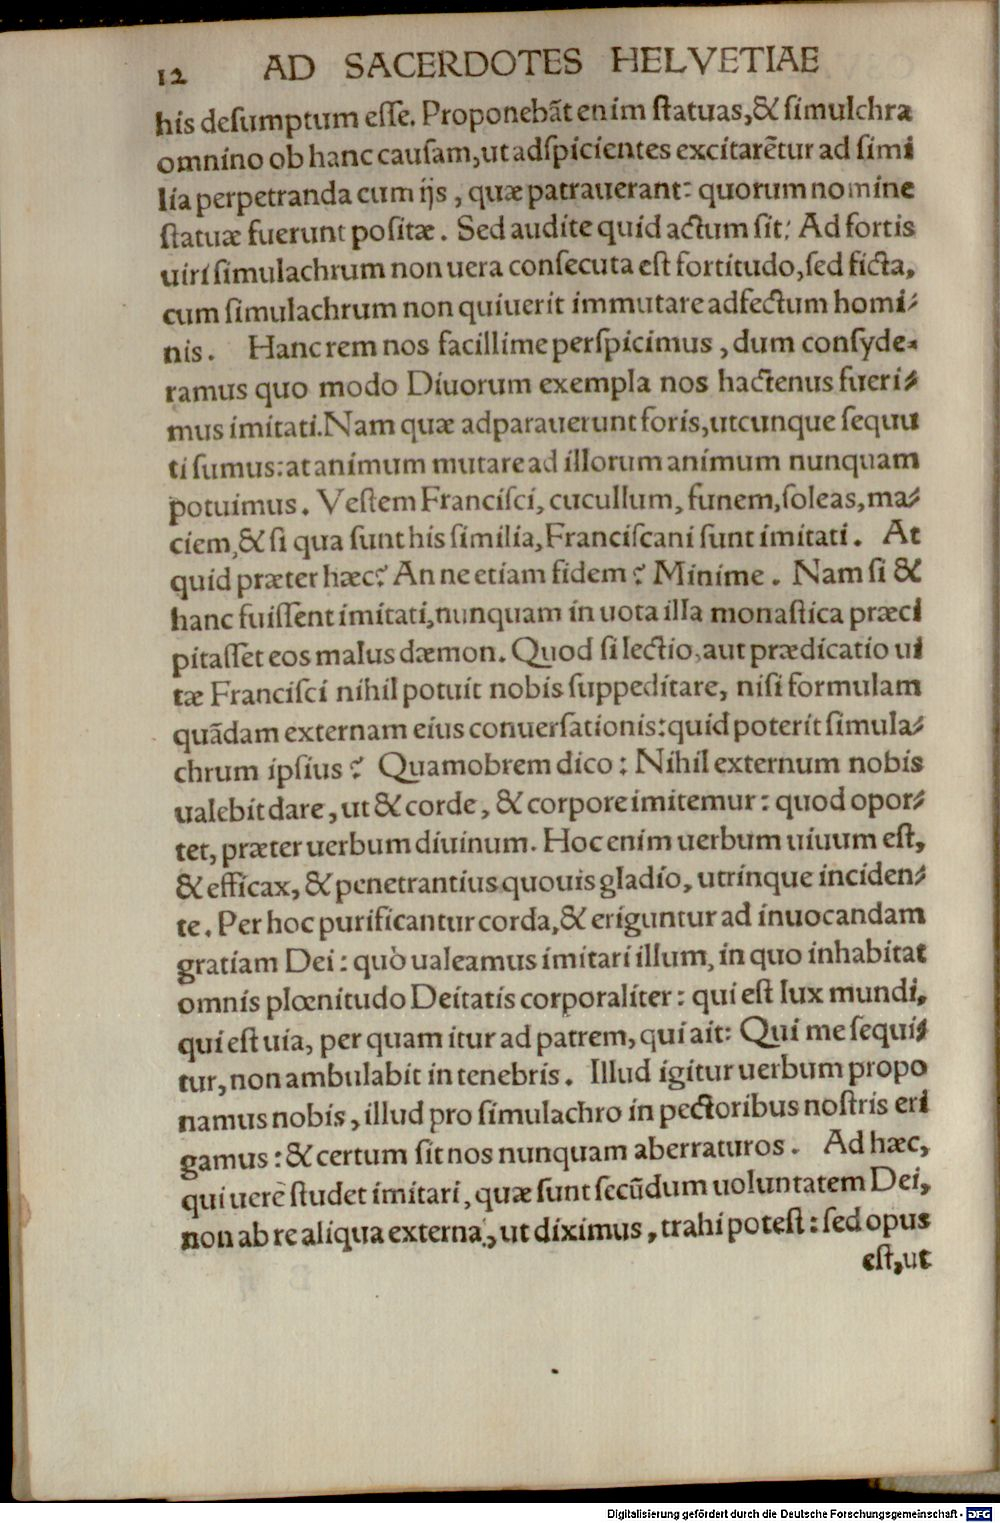 12 AD SACERDOTES HELVETIAE
his desumptum esse. Proponebāt enim statuas, & simulchra
omnino ob hanc causam, ut adspicientes excitarētur ad simi
lia perpetranda cum ijs, quæ patrauerant: quorum nomine
statuæ fuerunt positæ. Sed audite quid actum sit: Ad fortis
uiri simulachrum non uera consecuta est fortitudo, sed ficta,
cum simulachrum non quiuerit immutare adfectum homi-
nis. Hanc rem nos facillime perspicimus, dum consyde-
ramus quo modo Diuorum exempla nos hactenus fueri-
mus imitati. Nam quæ adparauerunt foris, utcunque sequu
ti sumus: at animum mutare ad illorum animum nunquam
potuimus. Vestem Francisci, cucullum, funem, soleas, ma-
ciem, & si qua sunt his similia, Franciscani sunt imitati. At
quid præter hæc? An ne etiam fidem? Minime. Nam si &
hanc fuissent imitati, nunquam in uota illa monastica præci
pitasset eos malus dæmon. Quod si lectio, aut prædicatio ui
tæ Francisci nihil potuit nobis suppeditare, nisi formulam
quādam externam eius conuersationis: quid poterit simula-
chrum ipsius? Quamobrem dico: Nihil externum nobis
ualebit dare, ut & corde, & corpore imitemur: quod opor-
tet, præter uerbum diuinum. Hoc enim uerbum uiuum est,
& efficax, & penetrantius quouis gladio, utrinque inciden-
te. Per hoc purificantur corda, & eriguntur ad inuocandam
gratiam Dei: quò ualeamus imitari illum, in quo inhabitat
omnis plœnitudo Deitatis corporaliter: qui est lux mundi,
qui est uia, per quam itur ad patrem, qui ait: Qui me sequi-
tur, non ambulabit in tenebris. Illud igitur uerbum propo
namus nobis, illud pro simulachro in pectoribus nostris eri
gamus: & certum sit nos nunquam aberraturos. Ad hæc,
qui uerè studet imitari, quæ sunt secūdum uoluntatem Dei,
non ab re aliqua externa, ut diximus, trahi potest: sed opus
est, ut
Digitalisierung gefördert durch die Deutsche Forschungsgemeinschaft - DFG